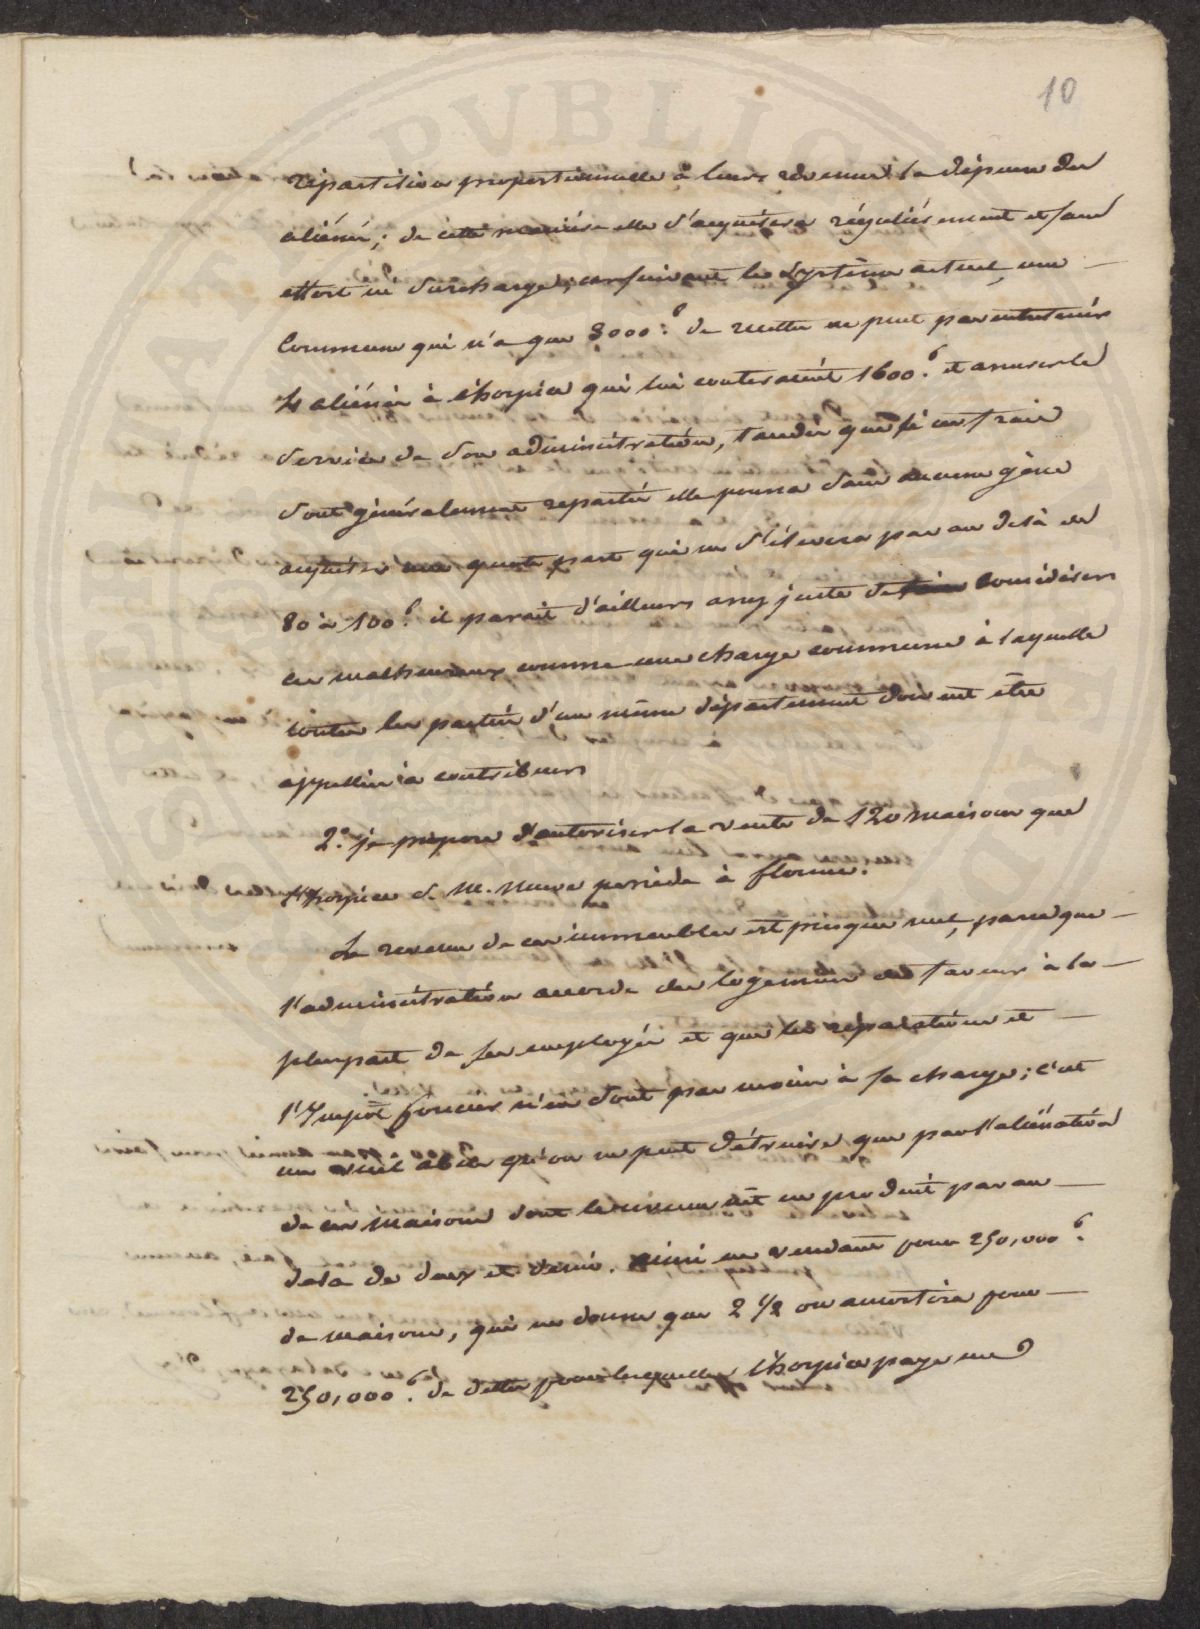 10
répartition proportionnelle à leurs revenus la dépense des
aliénés; de cette manière elle s'acquittera régulièrement et sans
effort ni surcharge; car suivant le système actuel, une
Commune qui n'a que 8000.f de recette ne peut pas entretenir
4 aliénés à l'hospice qui lui couteraient 1600.f et assurer le
service de son administration, tandis que si ces frais
sont généralement repartis elle pourra sans aucune gêne
acquitter une quote part qui ne s'élèvera pas au delà de
80 à 100.f il parait d'ailleurs assez juste de considérer
ces malheureux comme une charge commune à laquelle
toutes les parties d'un même département doivent être
appellées à contribuer
2.° je propose d'autoriser la vente de 120 maisons que
l'hospice S. M. Nuova possède à florence.
Le revenu de ces immeubles est presque nul, parceque
l'administration accorde des logemens de faveur à la
plupart de ses employés et que les réparations et
l'Impôt foncier n'en sont pas moins à sa charge; c'est
un abus qu'on ne peut détruire que par l'aliénation
de ces maisons dont le revenu net ne produit pas au
delà de deux et demi. ainsi en vendant pour 250,000.f
de maisons, qui ne donne que 2 1/2 on amortira pour
250,000.f de dettes pour lesquelles l'hospice paye un